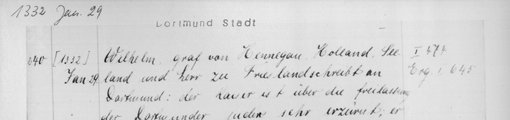 1332 Jan. 29
Dortmund Stadt
640 [1332] Wilhelm, graf von Hennegau, Holland, See- I 474
Jan 29. land und herr zu Friesland schreibt an Erg. I 645
Dortmund: der kaiser ist über die freilassung
der Dortmunder juden sehr erzürnt; er